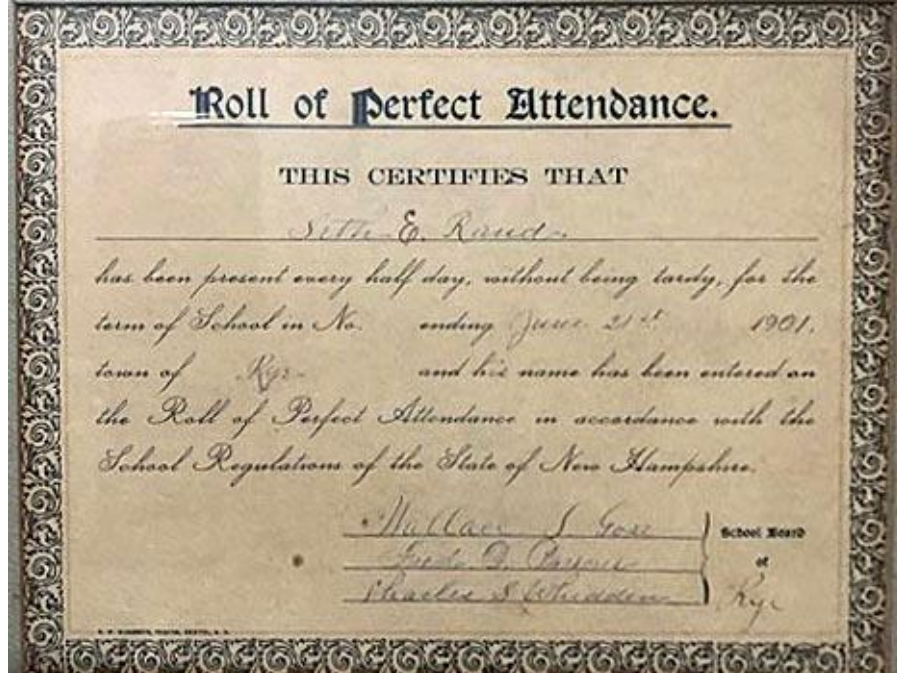 Roll of Perfect Attendance.
THIS CERTIFIES THAT
Seth E. Rand
has been present every half day, without being tardy, for the
term of School in No. ending June 21st 1901.
town of Rye and his name has been entered on
the Roll of Perfect Attendance in accordance with the
School Regulations of the State of New Hampshire.
Wallace S Goss
D. Parsons
Charles S Whidden
School Board
of
Rye